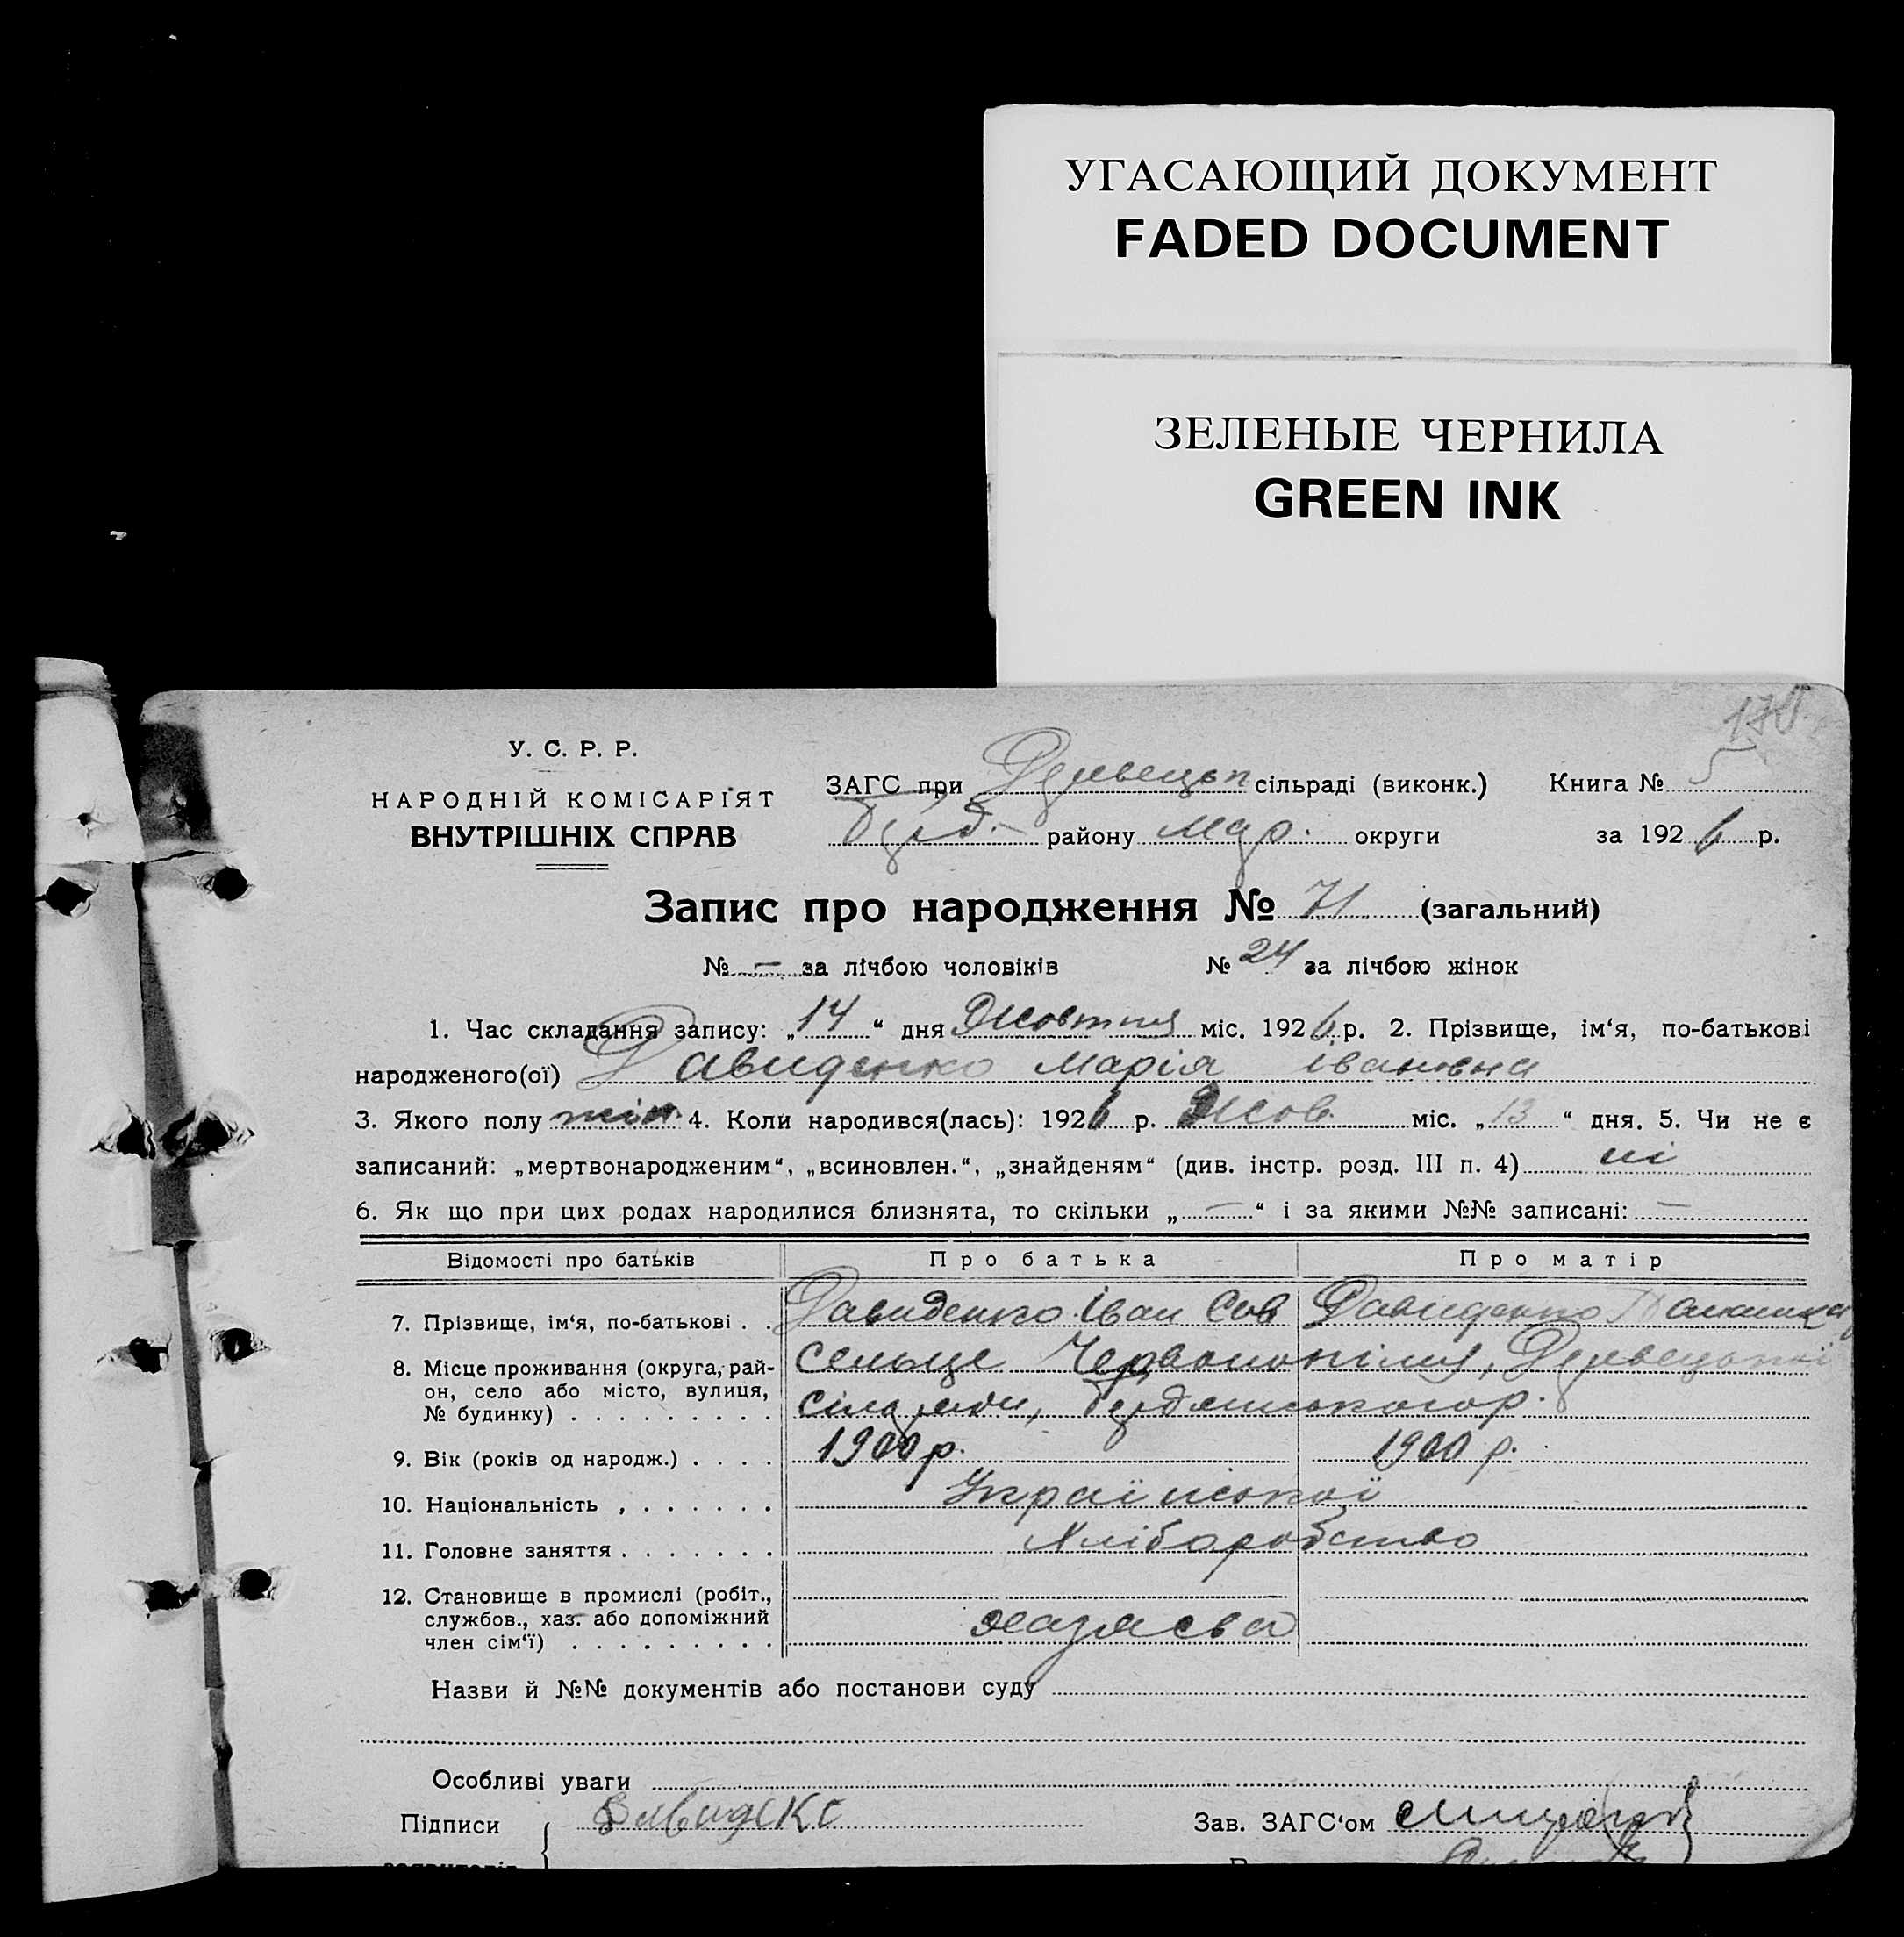 УГАСАЮЩИЙ ДОКУМЕНТ
FADED DOCUMENT
ЗЕЛЕНЫЕ ЧЕРНИЛА
GREEN INK
У. С. Р. Р.
НАРОДНІЙ КОМІСАРІЯТ
ВНУТРІШНІХ СПРАВ
ЗАГС при сільраді (виконк.) Книга № 5
району округи за 1926 р.
Запис про народження № 71 (загальний)
№ – за лічбою чоловіків № 24 за лічбою жінок
1. Час складання запису: „14“ дня Жовтня міс. 1926 р. 2. Прізвище, ім‘я, по-батькові
народженого(ої) Давиденко Марія Івановна
3. Якого полу жін. 4. Коли народився(лась): 1926 р. Жов. міс. „13“ дня. 5. Чи не є
записаний: „мертвонародженим“, „всиновлен.“, „знайденям“ (див. інстр. розд. III п. 4) ні
6. Як що при цих родах народилися близнята, то скільки „–“ і за якими №№ записані: –
Відомості про батьків Про батька Про матір
7. Прізвище, ім‘я, по-батькові . . Давиденко Іван Сав Давиденко
8. Місце проживання (округа, рай-
он, село або місто, вулиця,
№ будинку) . . . . . . . . . Сельце Червонопілля,
сільради,
9. Вік (років од народж.) . . . . 1900 р. 1900 р.
10. Національність , . . . . . . Української
11. Головне заняття . . . . . . . Хліборобство
12. Становище в промислі (робіт.,
службов., хаз. або допоміжний
член сім‘ї) . . . . . . . . .
Назви й №№ документів або постанови суду
Особливі уваги
Підписи Зав. ЗАГС‘ом